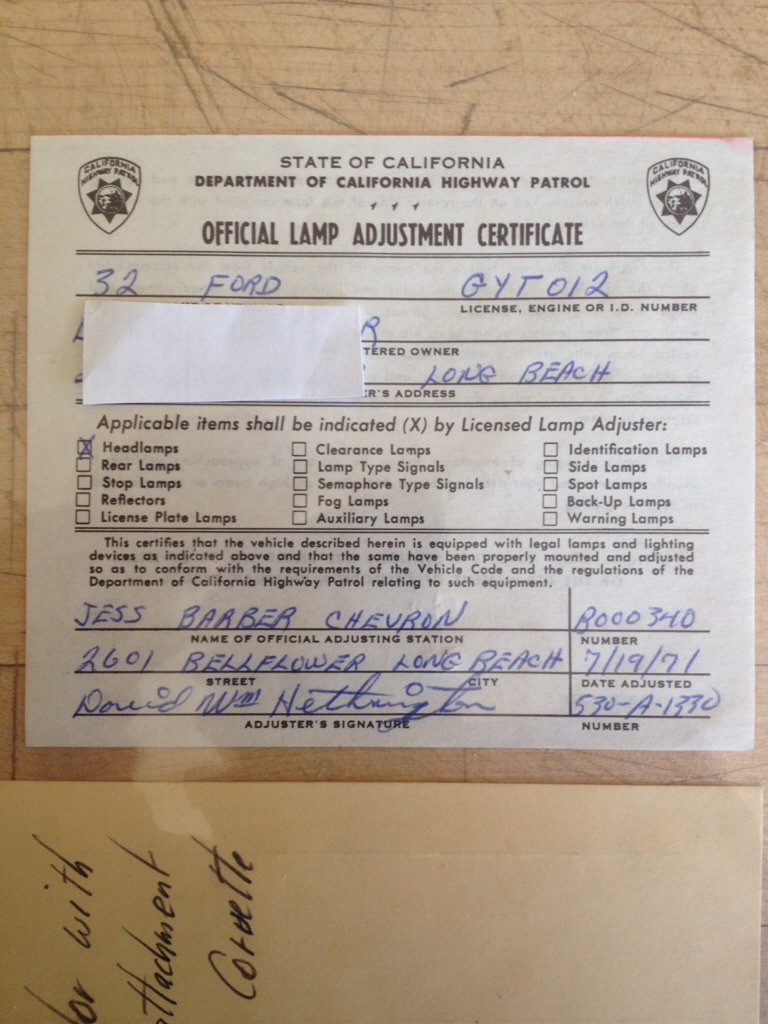 CALIFORNIA HIGHWAY PATROL
STATE OF CALIFORNIA
CALIFORNIA HIGHWAY PATROL
DEPARTMENT OF CALIFORNIA HIGHWAY PATROL
OFFICIAL LAMP ADJUSTMENT CERTIFICATE
32 FORD GYT012
LICENSE, ENGINE OR I.D. NUMBER
R
TERED OWNER
LONG BEACH
ER'S ADDRESS
Applicable items shall be indicated (X) by Licensed Lamp Adjuster:
X Headlamps Clearance Lamps Identification Lamps
Rear Lamps Lamp Type Signals Side Lamps
Stop Lamps Semaphore Type Signals Spot Lamps
Reflectors Fog Lamps Back-Up Lamps
License Plate Lamps Auxiliary Lamps Warning Lamps
This certifies that the vehicle described herein is equipped with legal lamps and lighting
devices as indicated above and that the same have been properly mounted and adjusted
so as to conform with the requirements of the Vehicle Code and the regulations of the
Department of California Highway Patrol relating to such equipment.
JESS BARBER CHEVRON R000340
NAME OF OFFICIAL ADJUSTING STATION NUMBER
2601 BELLFLOWER LONG BEACH 7/19/71
STREET CITY DATE ADJUSTED
David Wm Hethrington 530-A-1330
ADJUSTER'S SIGNATURE NUMBER
or with
ttachment
Corvette